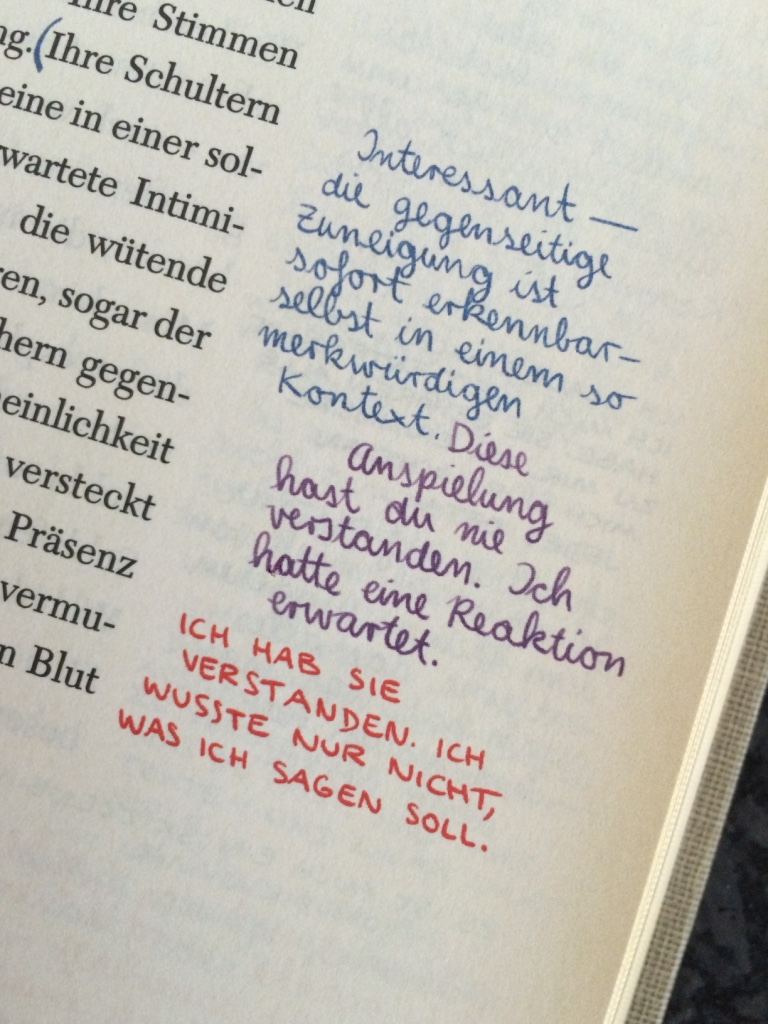 Ihre Stimmen
(Ihre Schultern
eine in einer sol-
wartete Intimi-
die wütende
ren, sogar der
hern gegen-
einlichkeit
versteckt
Präsenz
vermu-
Blut
Interessant —
die gegenseitige
Zuneigung ist
sofort erkennbar–
selbst in einem so
merkwürdigen
Kontext. Diese
Anspielung
hast du nie
verstanden. Ich
hatte eine Reaktion
erwartet.
ICH HAB SIE
VERSTANDEN. ICH
WUSSTE NUR NICHT,
WAS ICH SAGEN SOLL.